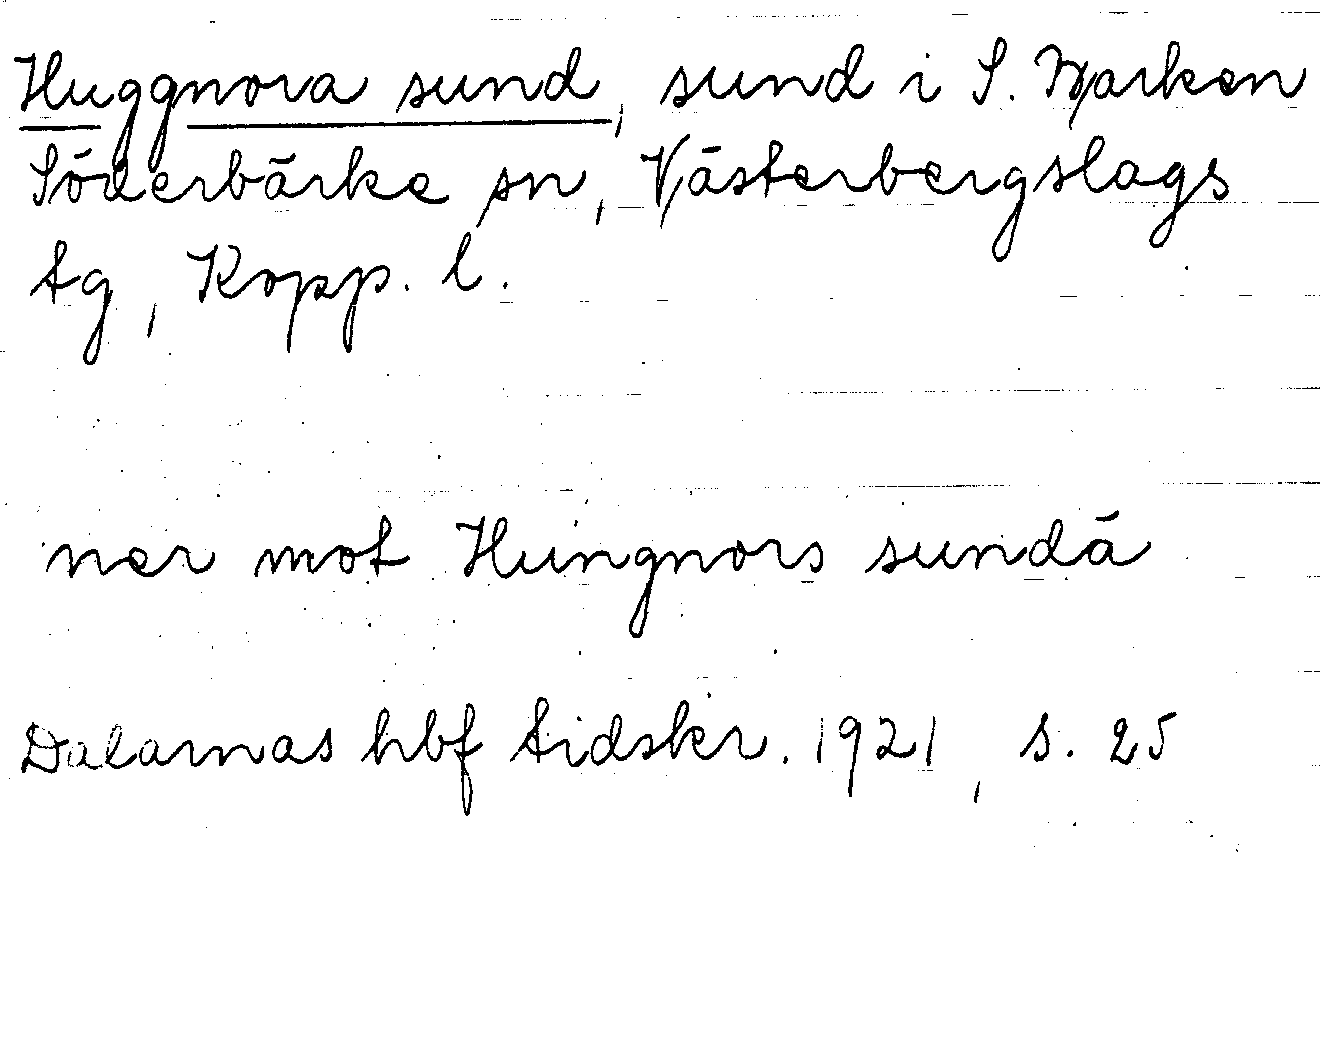 Huggnora sund, sund i S. Barken
Söderbärke sn, Västerbergslags
tg, Kopp. l.
ner mot Hungnors sundå
Dalarnas hbf tidskr. 1921, s. 25